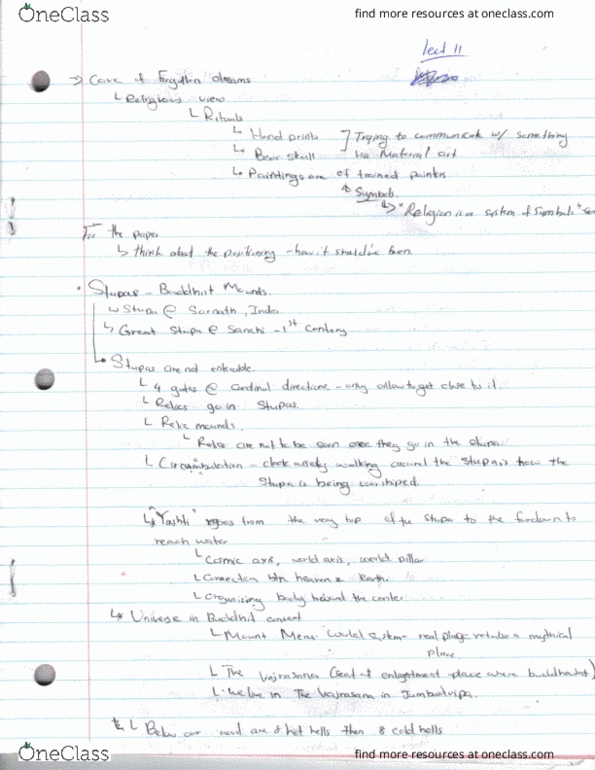 OneClass
find more resources at oneclass.com
Lect 11
→ Cave of Forgotten dreams
↳ Religious view
↳ Rituals
↳ Hand prints ] Trying to communicate w/ something
↳ Bear skull via Material art
↳ Paintings are of trained painters
Symbols.
↳ "Religion is a system of symbols"
For the paper
↳ think about the positioning - how it should've been
• Stupas - Buddhist Mounds.
↳ Stupa @ Sarnath, India
↳ Great Stupa @ Sanchi - 1st Century
↳ Stupas are not enterable.
↳ 4 gates @ cardinal directions - only allow to get close to it.
↳ Relics go in Stupas.
↳ Relic mounds.
↳ Relics are not to be seen once they go in the stupa.
↳ Circumambulation - clockwisely walking around the Stupa is how the
Stupa is being worshiped
↳ "Yashti" goes from the very top of the Stupa to the
reach water
↳ Cosmic axis, world axis, world pillar
↳ Connection btn heaven & Earth.
↳ Organizing body behind the center
↳* Universe in Buddhist
↳ Mount Meru World System - real place a mythical
place.
↳ The Vajrasana (seat of enlightment place where
↳ We live in The Vajrasana in Jumbudvipa.
↳ Below are 8 hot hells then 8 cold hells
OneClass
find more resources at oneclass.com